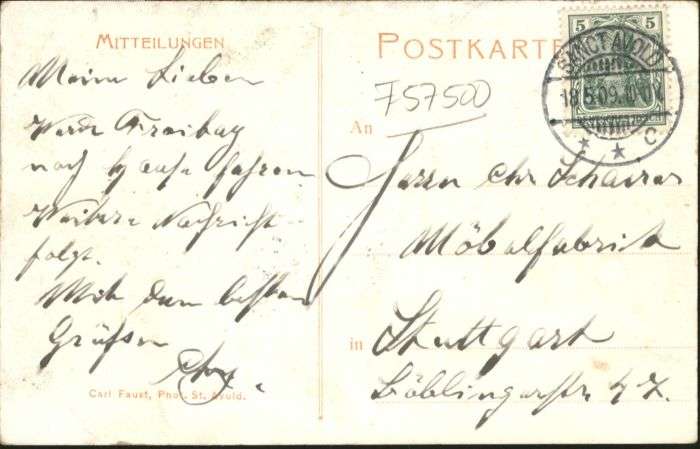 MITTEILUNGEN
Meine Lieben
Werde Freitag
nach Hause fahren.
Weitere Nachricht
folgt.
Mit den besten
Grüßen
Carl Faust, Phot. St. Avold.
POSTKARTE
5 5
SANCT AVOLD
18.5.09.
C
757500
An
Herrn Chr Schairer
Möbelfabrik
in Stuttgart
Böblingerstr. 47.